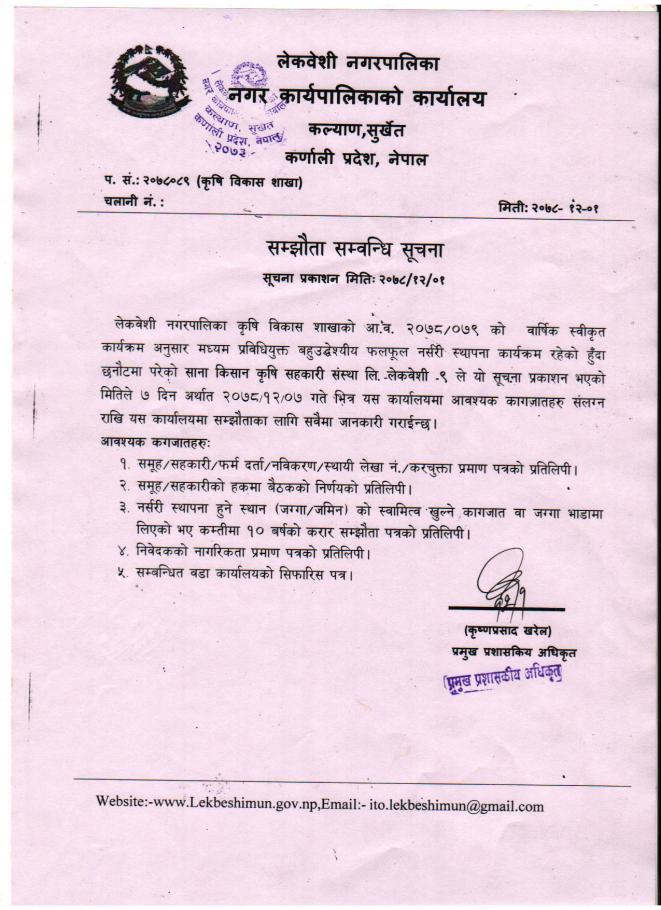 लेकवेशी नगरपालिका
नगर कार्यपालिकाको कार्यालय
कल्याण,सुर्खेत
कर्णाली प्रदेश, नेपाल
कल्याण, सुर्खेत
कर्णाली प्रदेश, नेपाल
२०७३
प. सं.: २०७८०८९ (कृषि विकास शाखा)
चलानी नं. :
मिती: २०७८- १२-०१
सम्झौता सम्वन्धि सूचना
सूचना प्रकाशन मितिः २०७८/१२/०१
लेकवेशी नगरपालिका कृषि विकास शाखाको आ.व. २०७८/०७९ को वार्षिक स्वीकृत
कार्यक्रम अनुसार मध्यम प्रविधियुक्त बहुउद्धेश्यीय फलफूल नर्सरी स्थापना कार्यक्रम रहेको हुँदा
छनौटमा परेको साना किसान कृषि सहकारी संस्था लि. -लेकवेशी -९ ले यो सूचना प्रकाशन भएको
मितिले ७ दिन अर्थात २०७८/१२/०७ गते भित्र यस कार्यालयमा आवश्यक कागज़ातहरु संलग्न
राखि यस कार्यालयमा सम्झौताका लागि सवैमा जानकारी गराईन्छ।
आवश्यक कगजातहरुः
१. समूह/सहकारी/फर्म दर्ता/नविकरण/स्थायी लेखा नं./करचुक्ता प्रमाण पत्रको प्रतिलिपी।
२. समूह/सहकारीको हकमा बैठकको निर्णयको प्रतिलिपी।
३. नर्सरी स्थापना हुने स्थान (जग्गा/जमिन) को स्वामित्व खुल्ने कागजात वा जग्गा भाडामा
लिएको भए कम्तीमा १० बर्षको करार सम्झौता पत्रको प्रतिलिपी।
४. निवेदकको नागरिकता प्रमाण पत्रको प्रतिलिपी।
५. सम्बन्धित वडा कार्यालयको सिफारिस पत्र।
(कृष्णप्रसाद खरेल)
प्रमुख प्रशासकिय अधिकृत
प्रमुख प्रशासकीय अधिकृत
Website:-www.Lekbeshimun.gov.np,Email:- ito.lekbeshimun@gmail.com